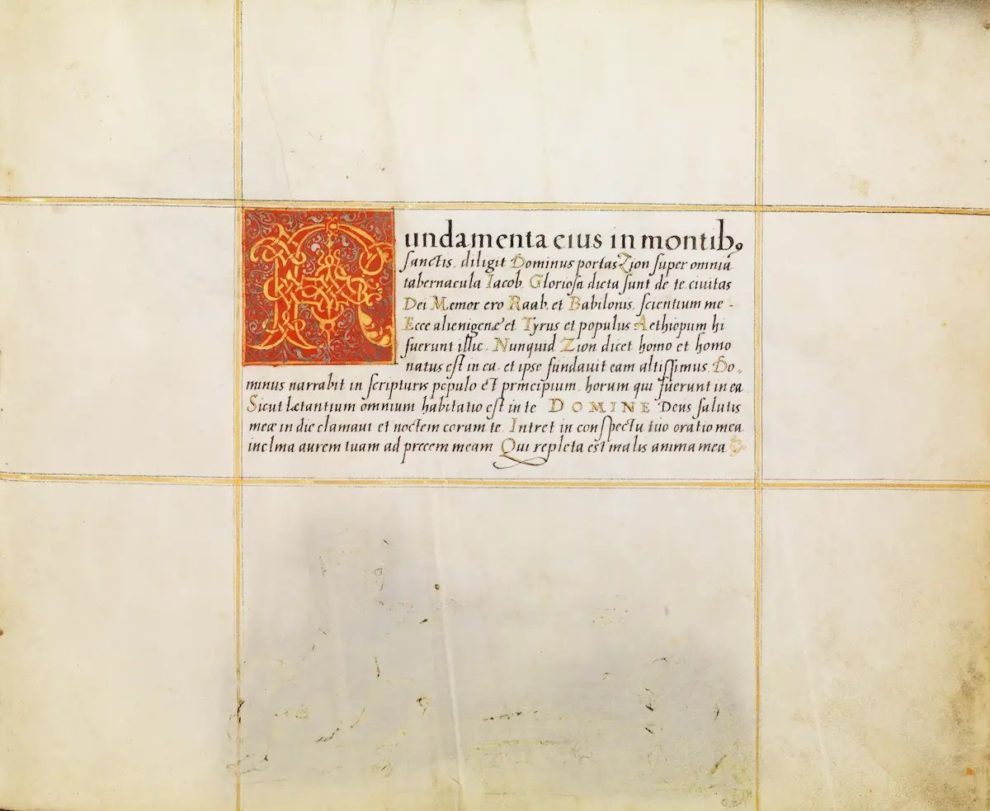 Fundamenta eius in montibꝰ
sanctis. diligit Dominus portas Zion super omnia
tabernacula Iacob. Gloriosa dicta sunt de te ciuitas
Dei Memor ero Raab. et Babilonis. scientium me -
Ecce alienigenæ et Tyrus et populus Aethiopum hi
fuerunt illic. Nunquid Zion dicet homo et homo
natus est in ea. et ipse fundauit eam altissimus. Do-
minus narrabit in scripturis populo et principium. horum qui fuerunt in ea
Sicut lætantium omnium habitatio est in te DOMINE Deus salutis
meæ in die clamaui et noctem coram te. Intret in conspectu tuo oratio mea
inclina aurem tuam ad precem meam Qui repleta est malis anima mea